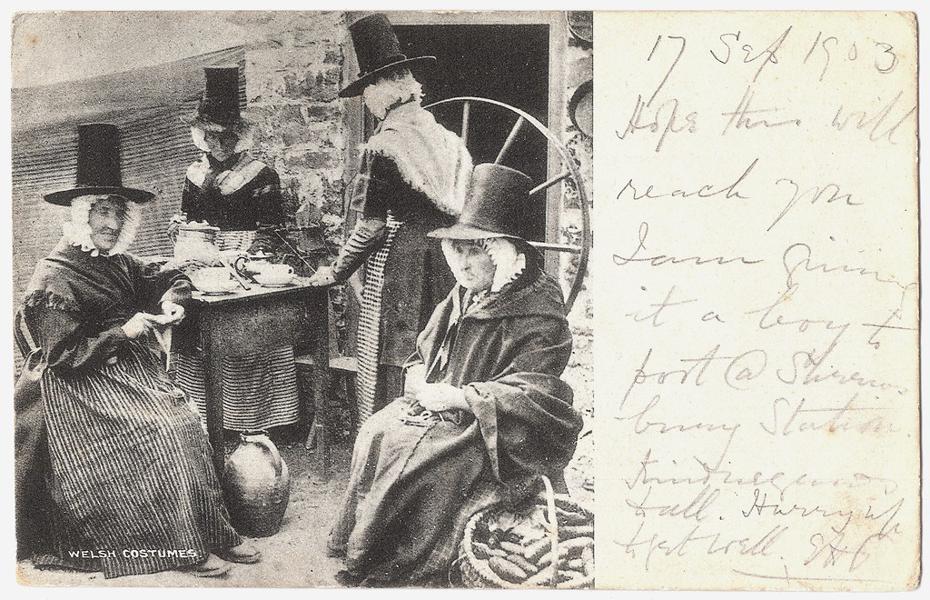 WELSH COSTUMES.
17 Sep 1903
Hope this will
reach you
I am giving
it a boy to
post @ Shrews
bury Station.
Kind regards
to all. Hurry up
& get well.